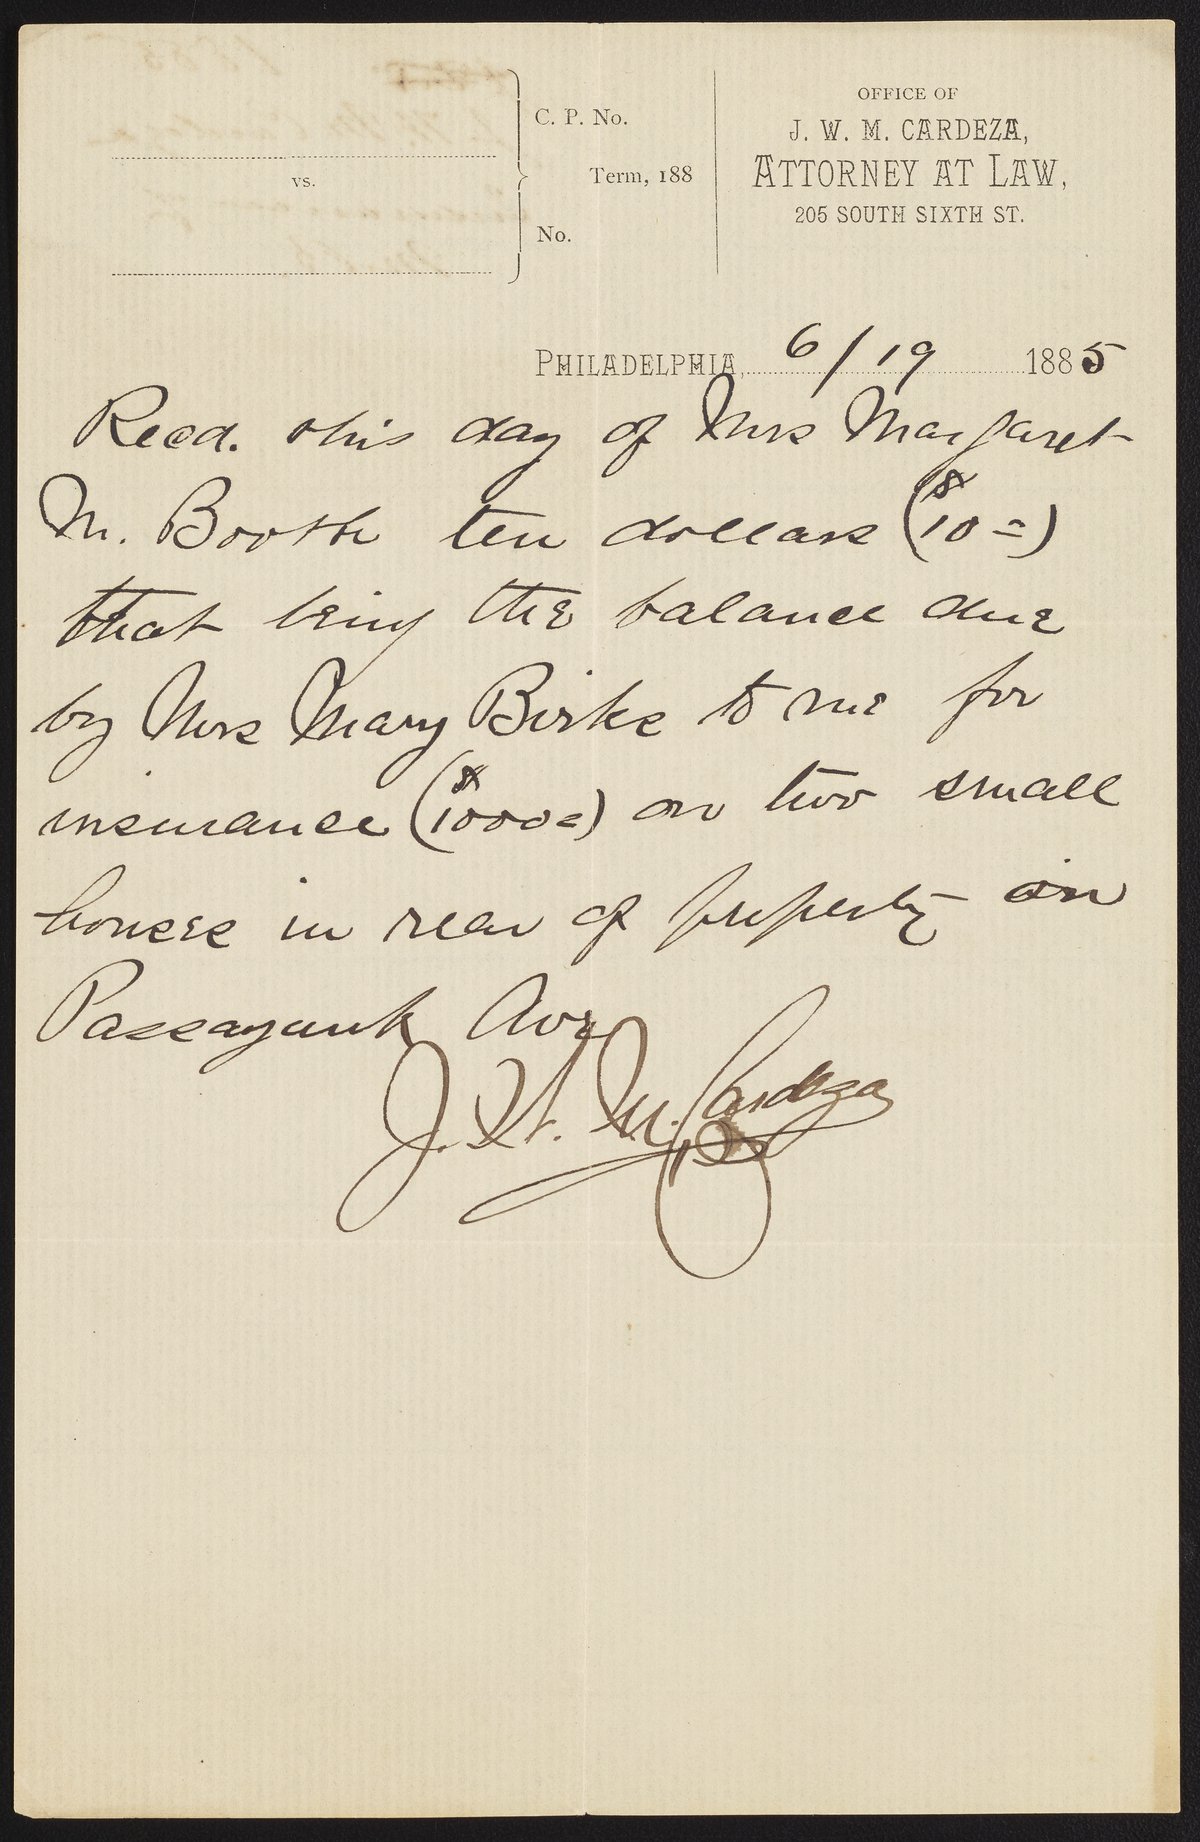 C. P. No.
vs.
Term, 188
No.
OFFICE OF
J. W. M. CARDEZA,
ATTORNEY AT LAW,
205 SOUTH SIXTH ST.
PHILADELPHIA, 6/19 1885
Recd. this day of Mrs Margaret
M. Booth ten dollars ($10=)
that being the balance due
by Mrs Mary Birks to me for
insurance ($1000=) on two small
houses in rear of property on
Passayunk Ave
J. W. M. Cardeza